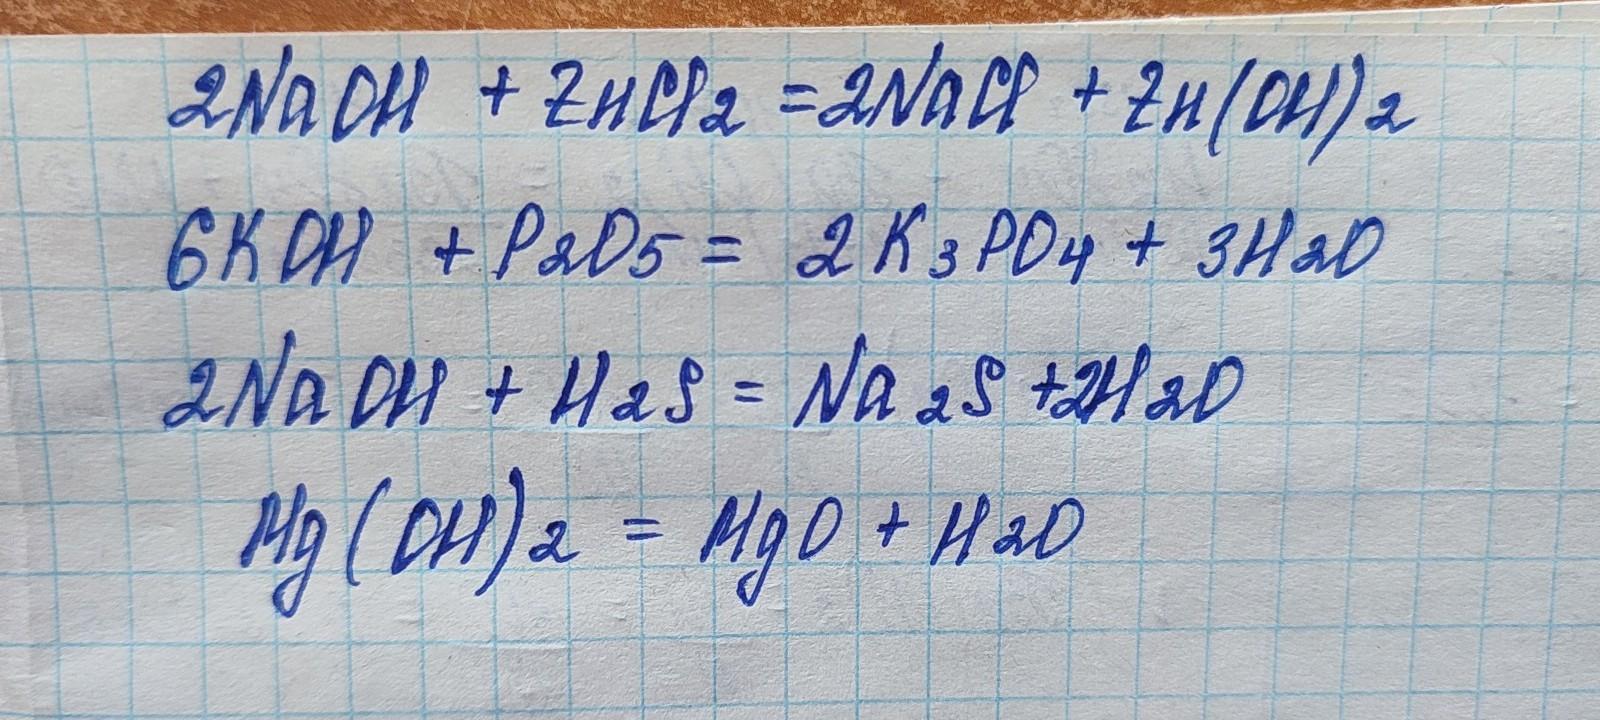 2NaOH + ZnCl2 = 2NaCl + Zn(OH)2
6KOH + P2O5 = 2K3PO4 + 3H2O
2NaOH + H2S = Na2S + 2H2O
Mg(OH)2 = MgO + H2O